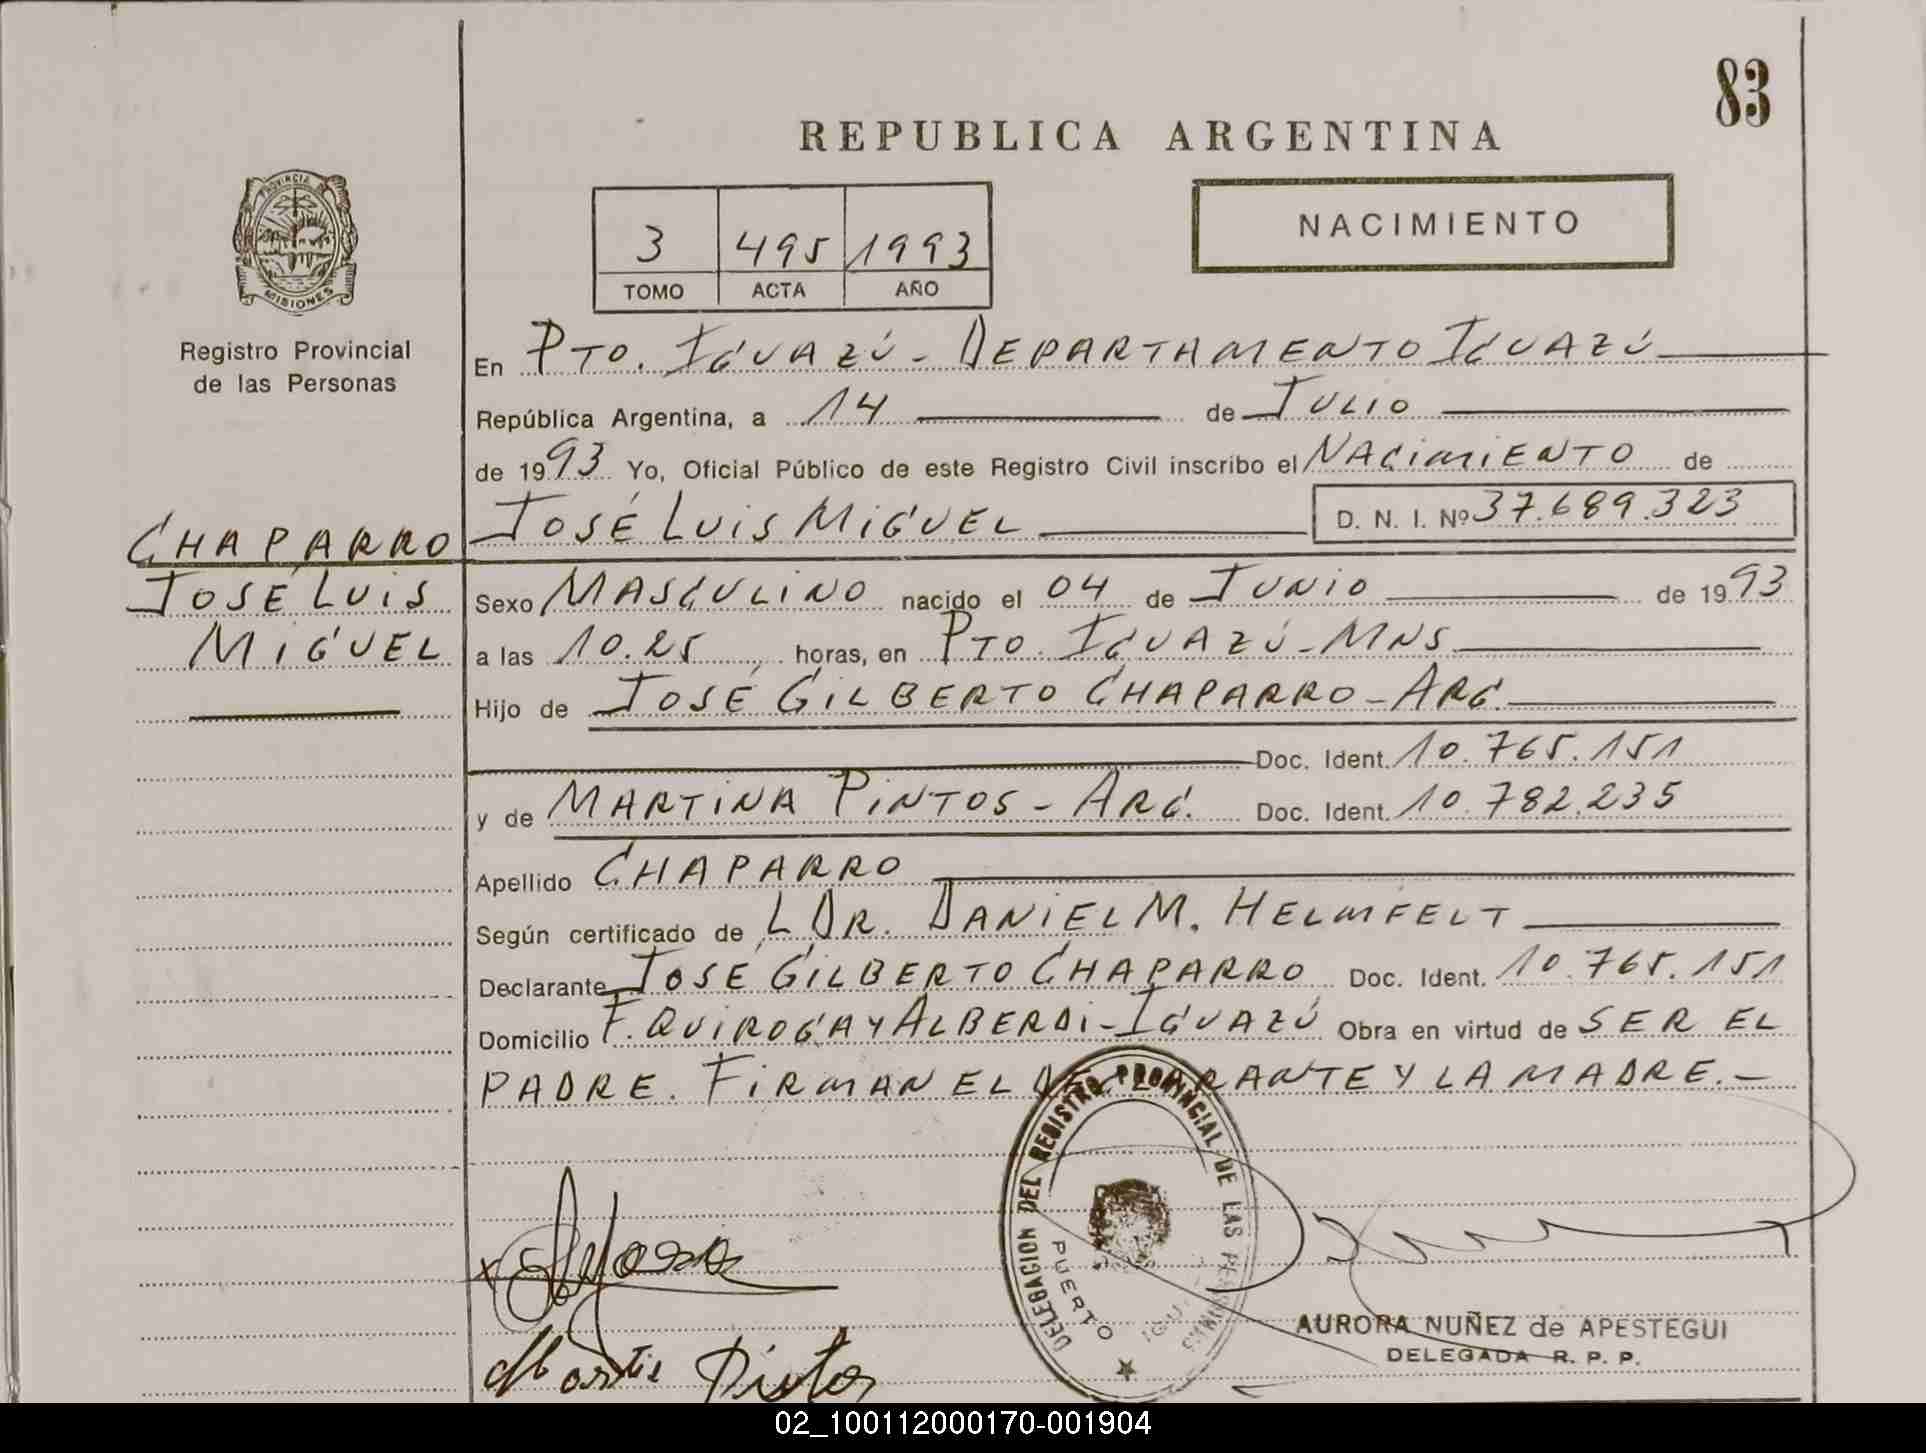 83
REPUBLICA ARGENTINA
PROVINCIA DE
MISIONES
Registro Provincial
de las Personas
3 495 1993
TOMO ACTA AÑO
NACIMIENTO
En PTO. IGUAZÚ - DEPARTAMENTO IGUAZÚ
República Argentina, a 14 de JULIO
de 1993 Yo, Oficial Público de este Registro Civil inscribo el NACIMIENTO de
CHAPARRO JOSÉ LUIS MIGUEL D. N. I. Nº 37.689.323
JOSÉ LUIS Sexo MASCULINO nacido el 04 de JUNIO de 1993
MIGUEL a las 10.25 horas, en PTO. IGUAZÚ - MNS
Hijo de JOSÉ GILBERTO CHAPARRO - ARG.
Doc. Ident. 10.765.151
y de MARTINA PINTOS - ARG. Doc. Ident. 10.782.235
Apellido CHAPARRO
Según certificado de L DR. DANIEL M. HELMFELT
Declarante JOSÉ GILBERTO CHAPARRO Doc. Ident. 10.765.151
Domicilio F. QUIROGA Y ALBERDI - IGUAZÚ Obra en virtud de SER EL
PADRE. FIRMAN EL DECLARANTE Y LA MADRE. -
DELEGACION DEL REGISTRO PROVINCIAL DE LAS PERSONAS
PUERTO IGUAZU
Pintos
AURORA NUÑEZ de APESTEGUI
DELEGADA R. P. P.
02_100112000170-001904